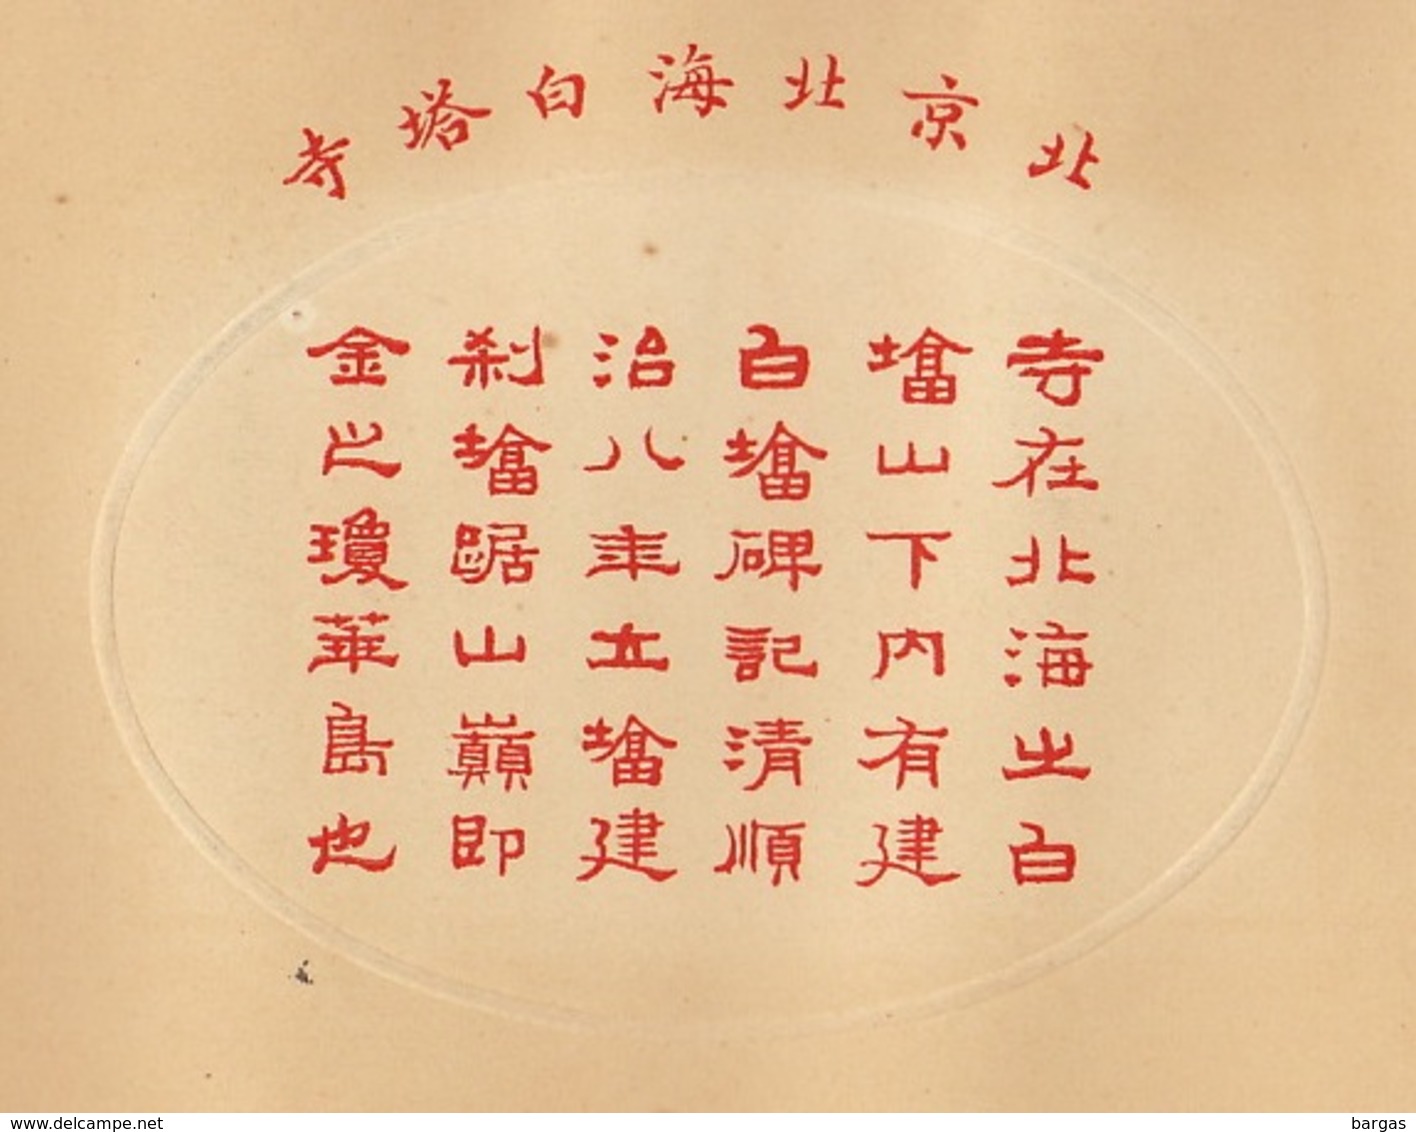 北京北海白塔寺
寺在北海之白
塔山下内有建
白塔碑記清順
治八年立塔建
刹塔踞山巔即
金之瓊華島也
www.delcampe.net
bargas